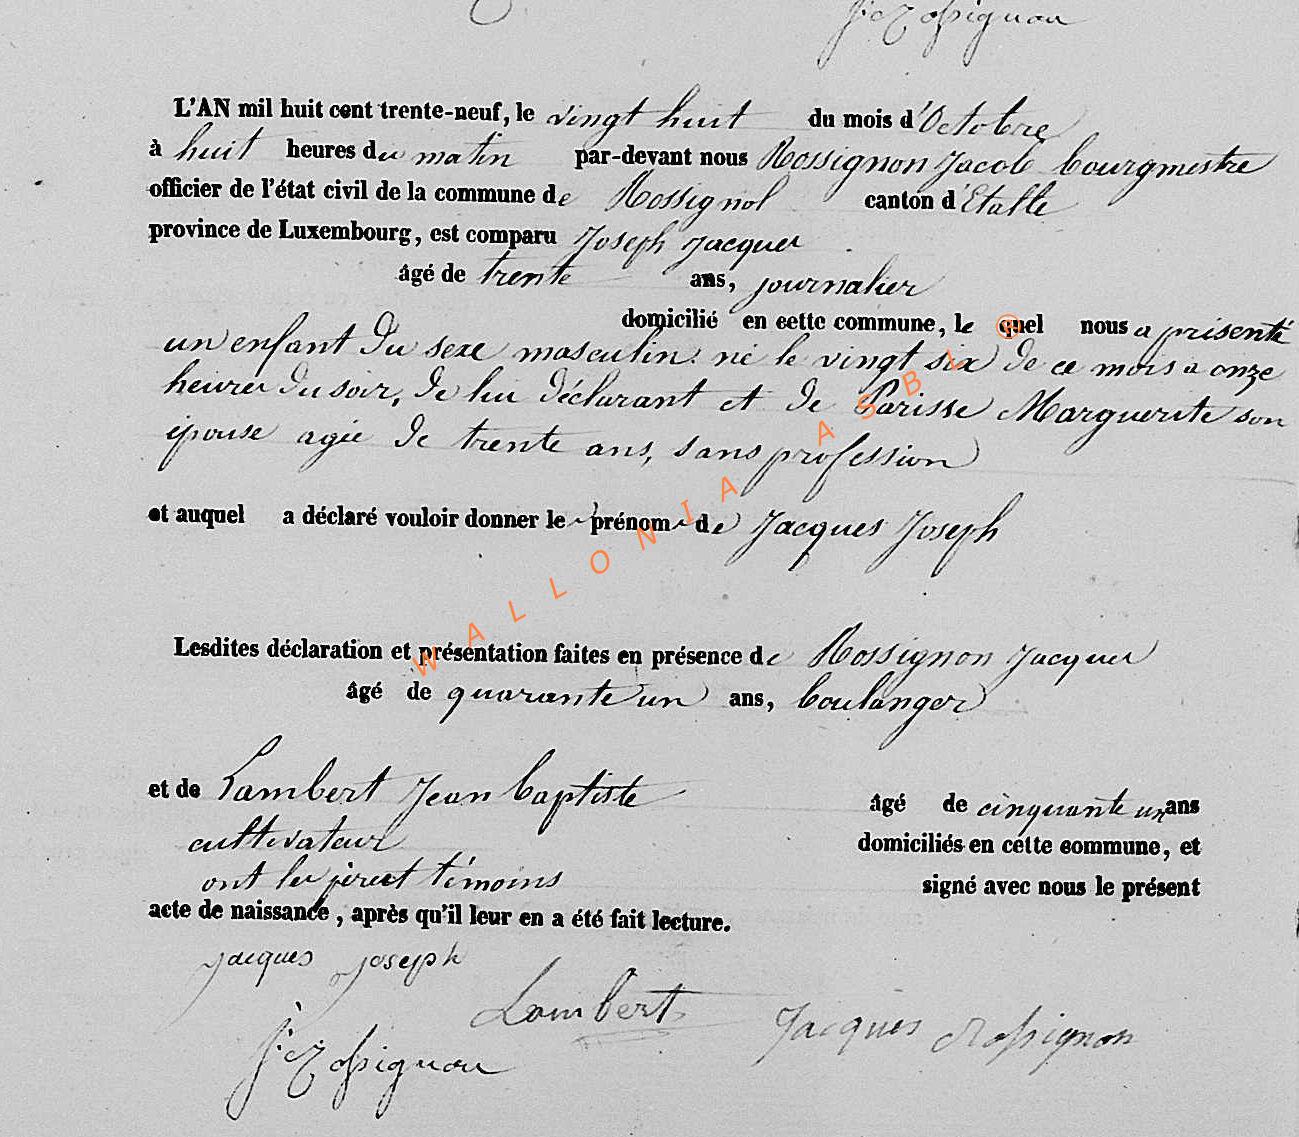 J: Rossignon
L'AN mil huit cent trente-neuf, le vingt huit du mois d'Octobre
à huit heures du matin par-devant nous Rossignon Jacob bourgmestre
officier de l'état civil de la commune de Rossignol canton d'Etalle
province de Luxembourg, est comparu Joseph Jacques
âgé de trente ans, journalier
domicilié en cette commune, le quel nous a présenté
un enfant du sexe masculin né le vingt six de ce mois a onze
heures du soir, de lui déclarant et de Parisse Marguerite son
épouse agée de trente ans, sans profession
et auquel a déclaré vouloir donner le prénom de Jacques Joseph
Lesdites déclaration et présentation faites en présence de Rossignon Jacques
âgé de quarante un ans, boulanger
et de Lambert Jean baptiste âgé de cinquante un ans
cultivateur domiciliés en cette commune, et
ont les père et témoins signé avec nous le présent
acte de naissance, après qu'il leur en a été fait lecture.
jacques joseph
Lambert Jacques Rossignon
J: Rossignon
WALLONIA ASBL ®